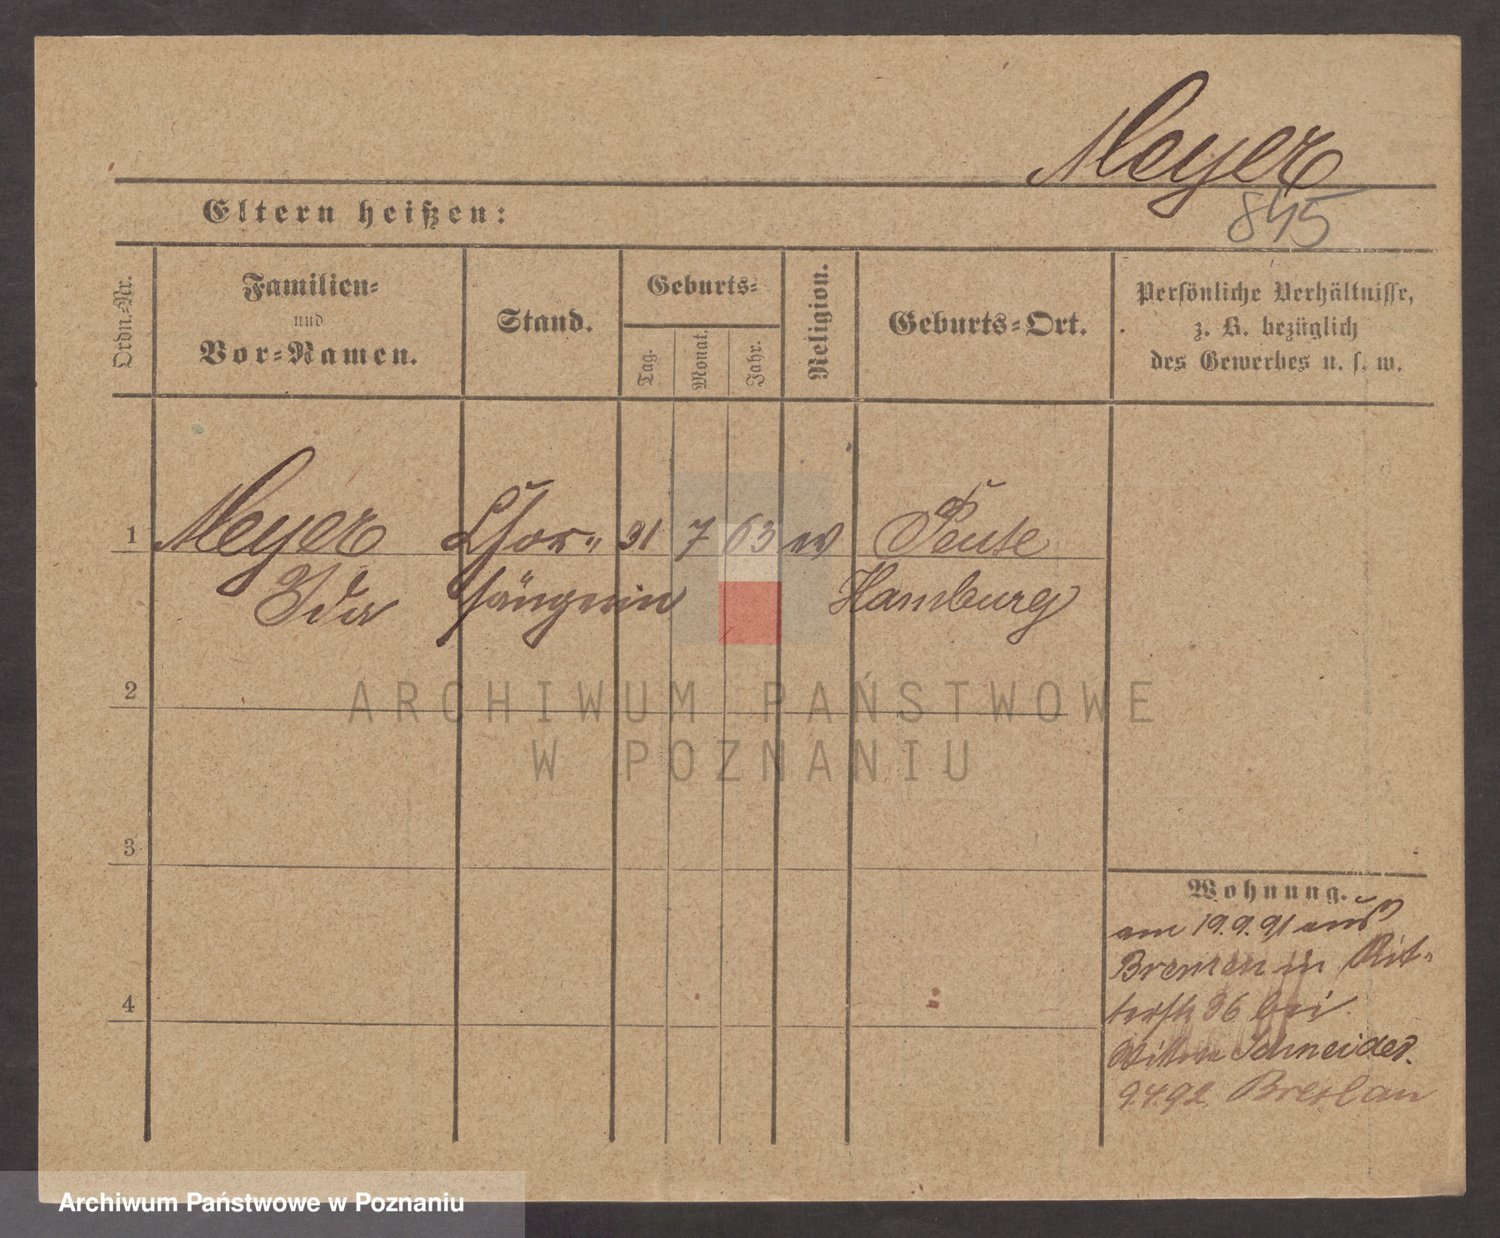 Meyer
845
Eltern heißen:
Ordn.-Nr.
Familien-
und
Vor-Namen.
Stand.
Geburts-
Tag.
Monat.
Jahr.
Religion.
Geburts-Ort.
Persönliche Verhältnisse,
z. B. bezüglich
des Gewerbes u. s. w.
1 Meyer Chor- 31 7 63 ev Peute
Ida sängerin Hamburg
2
3
4
Wohnung.
am 19.9.91 aus
Bremen in Rit-
terstr 36 bei
Wittwe Schneider.
9492 Breslau
ARCHIWUM PAŃSTWOWE
W POZNANIU
Archiwum Państwowe w Poznaniu